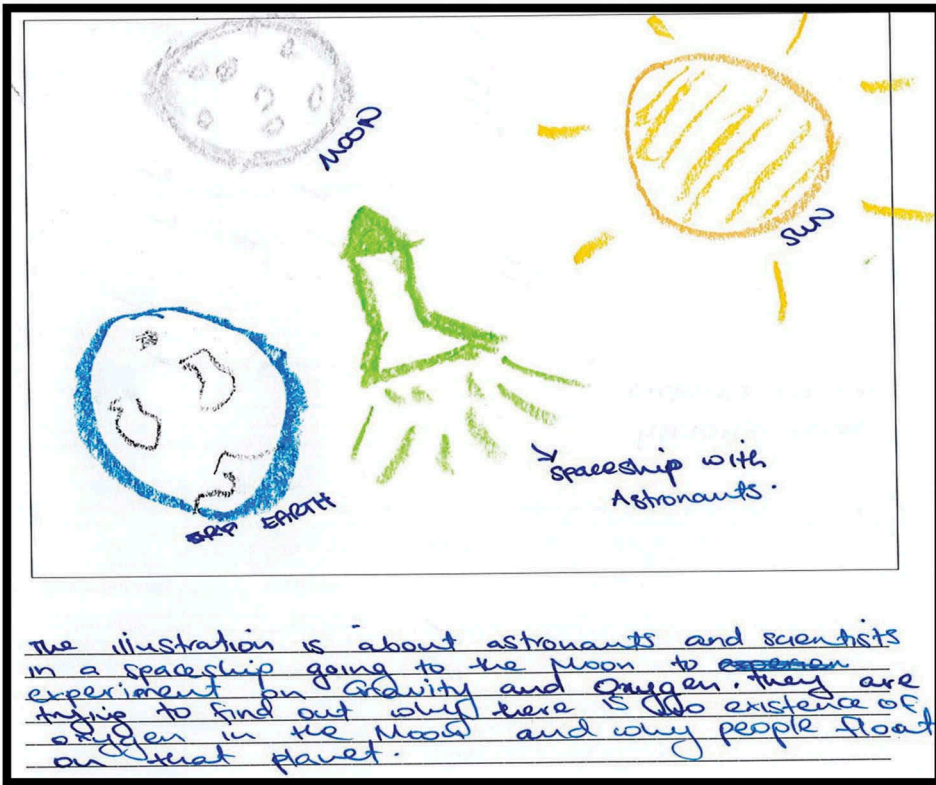 MOON
SUN
EARTH
spaceship with
Astronauts.
The illustration is about astronants and scientists
in a spaceship going to the Moon to
experiment on Gravity and Oxygen. they are
trying to find out why there is No existence of
oxygen in the Moon and why people float
on that planet.